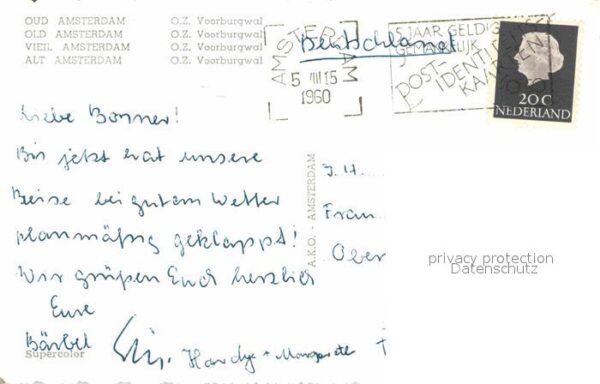 OUD AMSTERDAM O.Z. Voorburgwal
OLD AMSTERDAM O.Z. Voorburgwal
VIEIL AMSTERDAM O.Z. Voorburgwal
ALT AMSTERDAM O.Z. Voorburgwal
AMSTERDAM
5 VIII 15
1960
5 JAAR GELDIG
GEMAKKELIJK
POST-
IDENTITEITS
KAARTEN
Deutschland
20C
NEDERLAND
Liebe Bonner!
Bis jetzt hat unsere
Reise bei gutem Wetter
planmäßig geklappt!
Wir grüßen Euch herzlich
Eure
Bärbel
Hardy + Margarete
Supercolor
A.K.O. - AMSTERDAM
Frau
Ober
privacy protection
Datenschutz